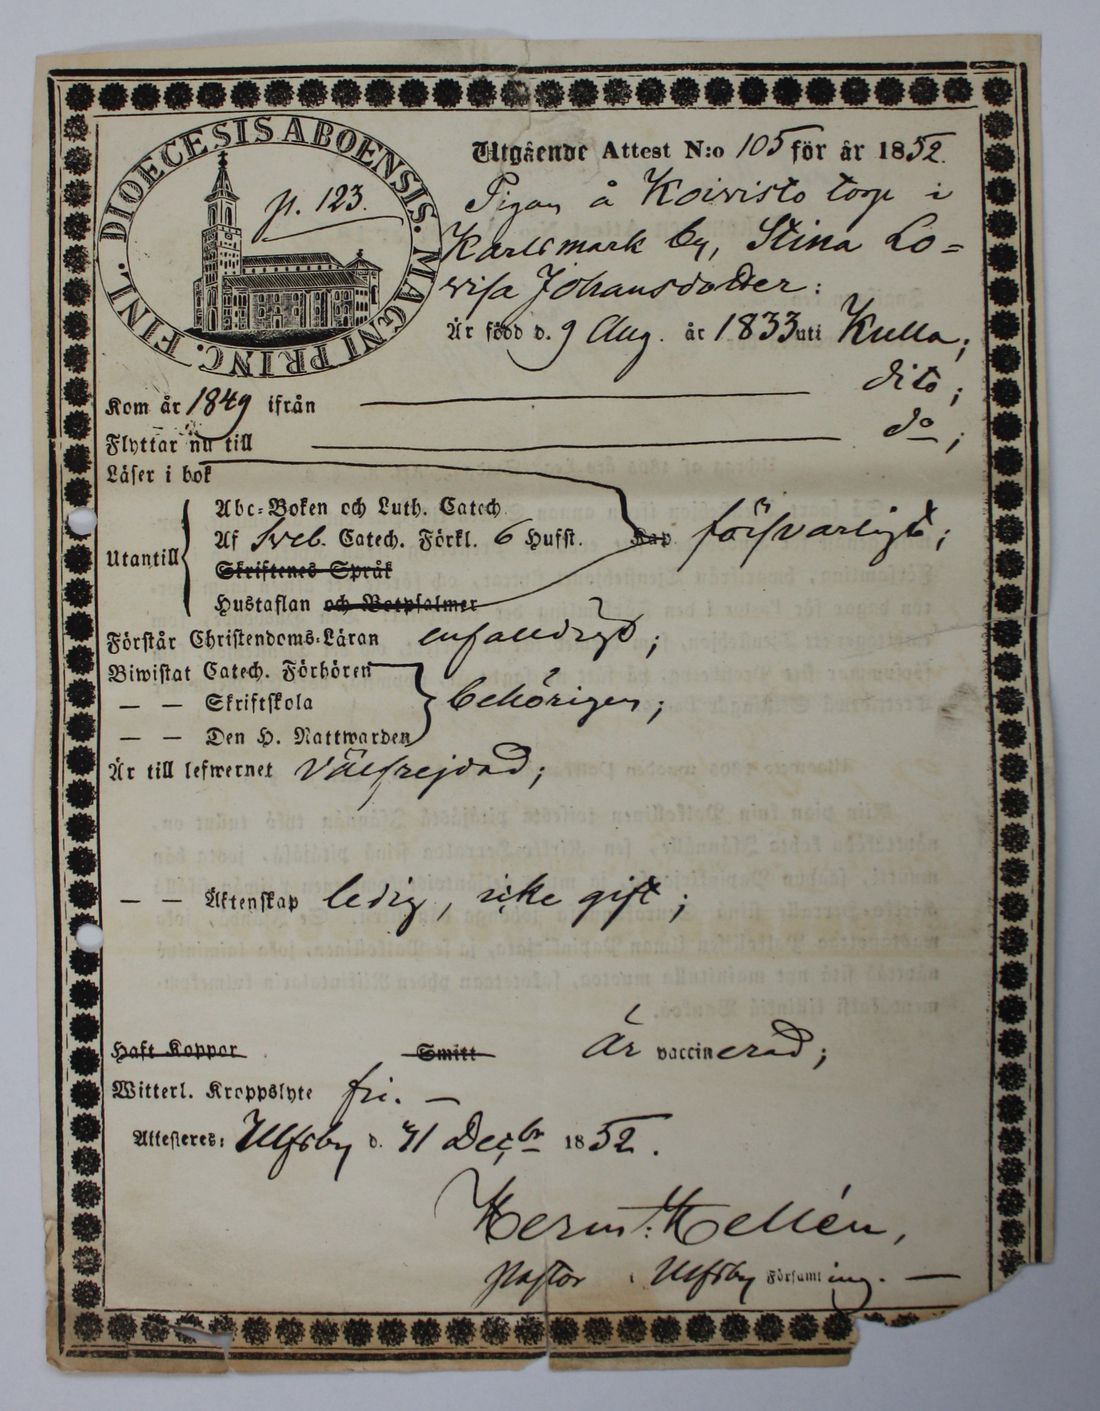 DIOECESIS ABOENSIS. MAGNI PRINC. FINL.
p. 123.
Utgående Attest N:o 105 för år 1852.
Pigan å Koivisto torp i
Karlsmark by, Stina Lo=
visa Johansdotter:
Är född d. 9 Aug. år 1833 uti Kulla;
Kom år 1849 ifrån dito;
Flyttar nu till do;
Läser i bok
Abc=Boken och Luth. Catech.
Utantill Af Sveb. Catech. Förkl. 6 Hufst. Kap försvarligt;
Skriftenes Språk
Hustaflan och Botpsalmer
Förstår Christendoms=Läran enfaldigt;
Biwistat Catech. Förhören
— — Skriftskola behörigen;
— — Den H. Nattwarden
Är till lefwernet välfrejdad;
— — Äktenskap ledig, icke gift;
Haft Koppor Smitt Är vaccinerad;
Witterl. Kroppslyte fri. —
Attesteres: Ulfsby d. 31 Decbr 1852.
Herm: Hellén,
Pastor i Ulfsby Församling. —